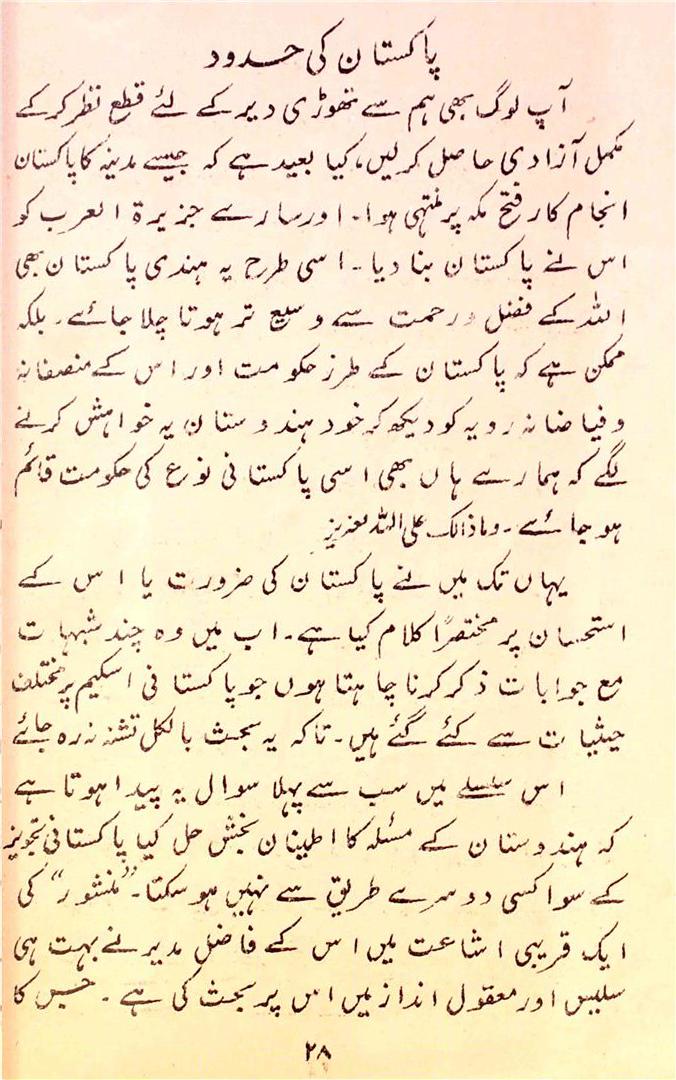 پاکستان کی حدود
آپ لوگ بھی ہم سے تھوڑی دیر کے لئے قطع نظر کر کے
مکمل آزادی حاصل کرلیں، کیا بعید ہے کہ جیسے مدینہ کا پاکستان
انجام کار فتح مکہ پر منتہی ہوا۔ اور سارے جزیرۃ العرب کو
اس نے پاکستان بنا دیا۔ اسی طرح یہ ہندی پاکستان بھی
اللہ کے فضل و رحمت سے وسیع تر ہوتا چلا جائے۔ بلکہ
ممکن ہے کہ پاکستان کے طرز حکومت اور اس کے منصفانہ
و فیاضانہ رویہ کو دیکھ کر خود ہندوستان یہ خواہش کرنے
لگے کہ ہمارے ہاں بھی اسی پاکستانی نوع کی حکومت قائم
ہو جائے۔ وما ذالک علی اللہ بعزیز
یہاں تک میں نے پاکستان کی ضرورت یا اس کے
استحسان پر مختصراً کلام کیا ہے۔ اب میں وہ چند شبہات
مع جوابات ذکر کرنا چاہتا ہوں جو پاکستانی اسکیم پر مختلف
حیثیات سے کئے گئے ہیں۔ تاکہ یہ بحث بالکل تشنہ نہ رہ جائے
اس سلسلے میں سب سے پہلا سوال یہ پیدا ہوتا ہے
کہ ہندوستان کے مسئلہ کا اطینان بخش حل کیا پاکستانی تجویز
کے سوا کسی دوسرے طریق سے نہیں ہو سکتا۔ ”منشور“ کی
ایک قریبی اشاعت میں اس کے فاضل مدیر نے بہت ہی
سلیس اور معقول انداز میں اس پر بحث کی ہے۔ جس کا
۲۸